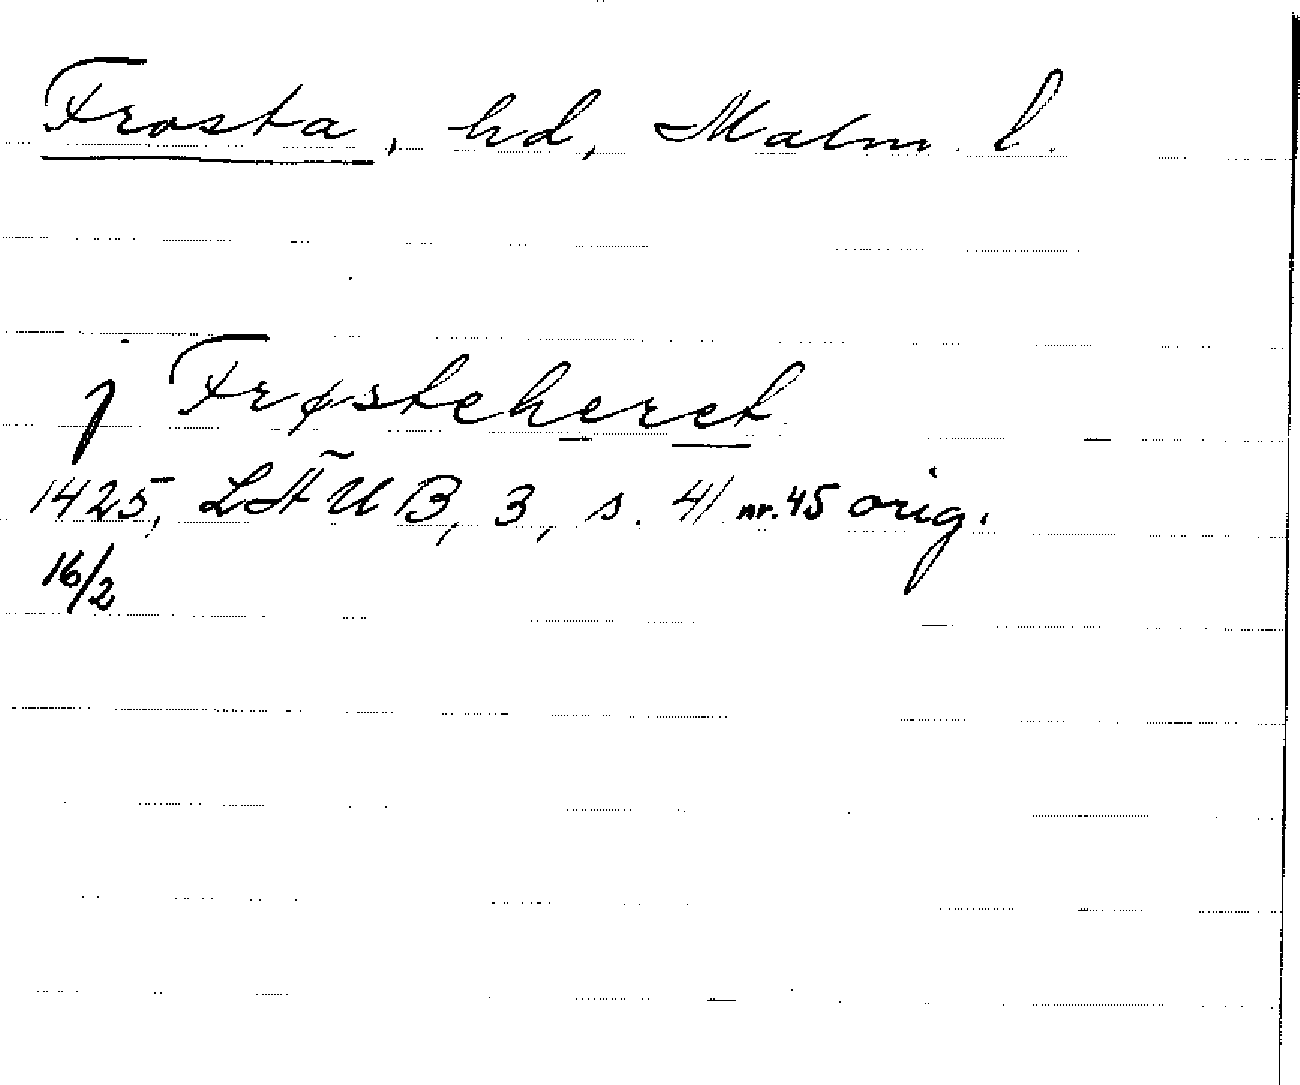 Frosta, hd, Malm. l.
j Frøsteheret
1425, LÄUB, 3, s. 41 nr. 45 orig.
16/2